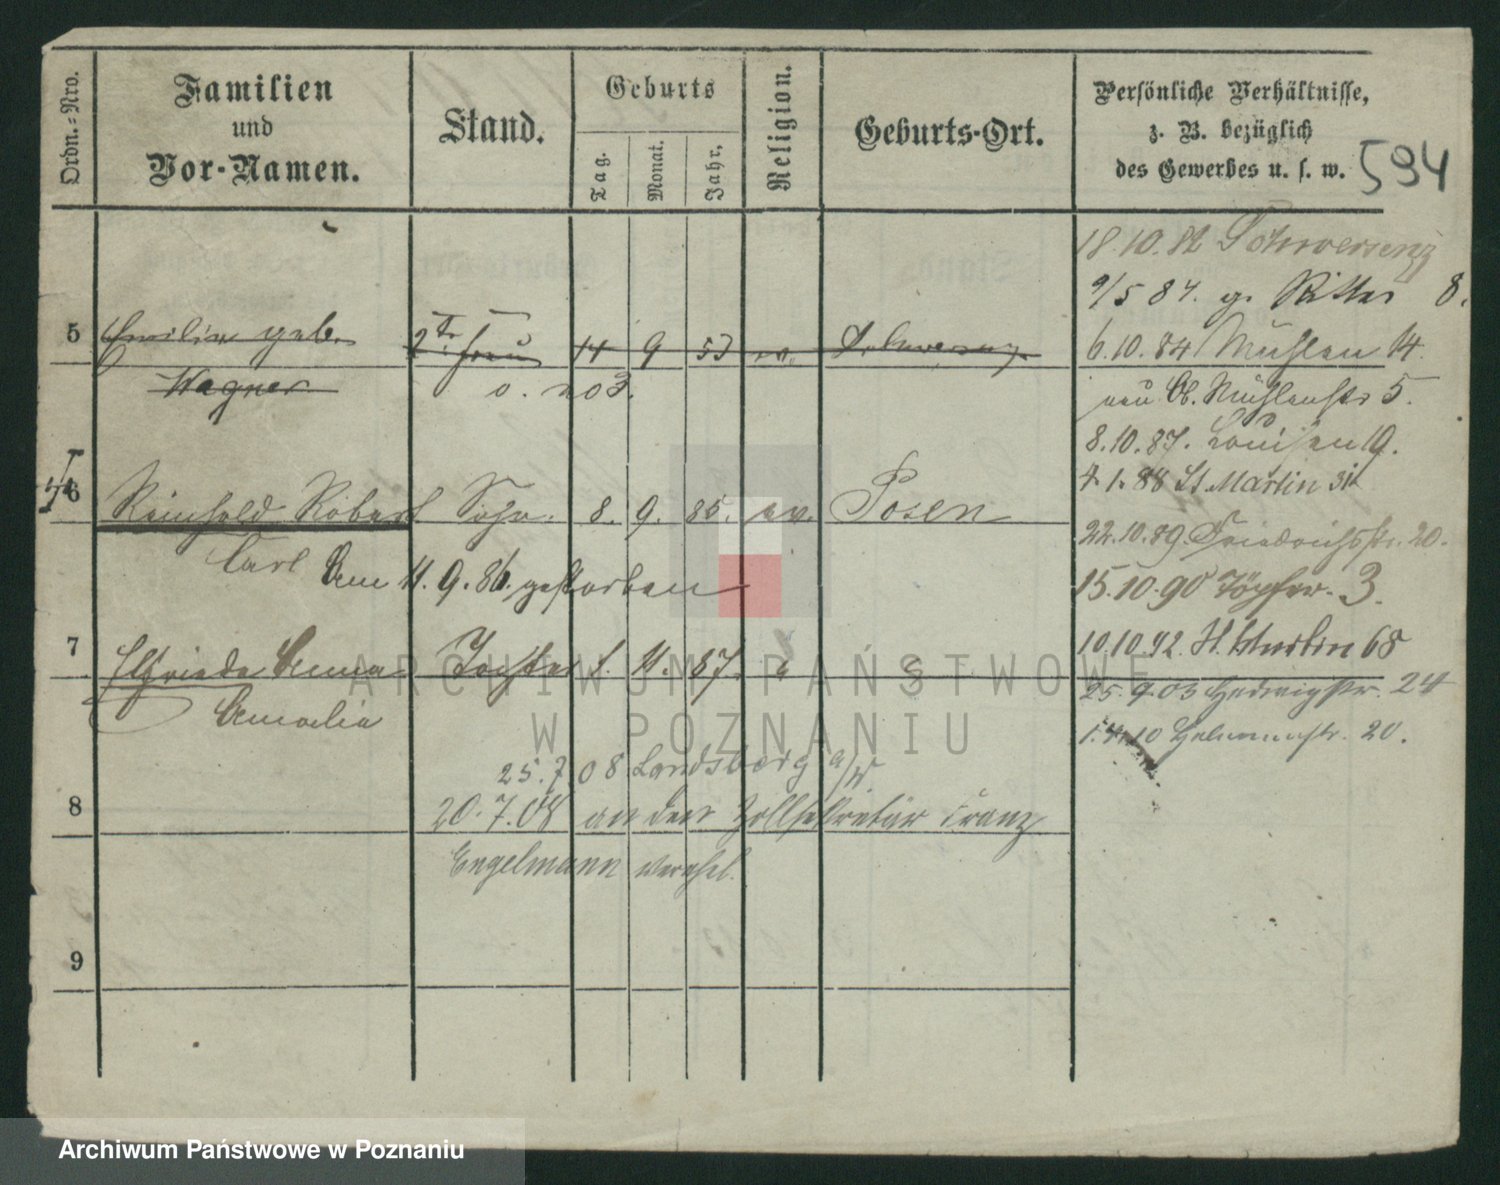 Ordn.-Nro.
Familien
und
Vor-Namen.
Stand.
Geburts
Tag.
Monat.
Jahr.
Religion.
Geburts-Ort.
Persönliche Verhältnisse,
z. B. bezüglich
des Gewerbes u. s. w.
594
18.10.82 Schwersenz
9/5 84. gr. Ritter 8.
5 Emilie geb. 2te Frau 14 9 53 ev. Schwersenz
6.10.84 Mühlen 14.
Wagner o. no 3.
neu Ob. Mühlenstr 5.
8.10.87. Louisen 19.
4.1.88 St. Martin 31
6 Reinhold Robert Sohn. 8. 9. 85. ev. Posen
22.10.89. Friedrichsstr. 20.
Carl Am 11.9.86. gestorben
15.10.90 Töpfer. 3.
7 Elfriede Anna Tochter 1. 11. 87.
10.10.92. St. Martin 68
Amalie
25.9.03 Hedwigstr. 24
1.4.10 20.
25.7.08 Landsberg a/W
8 20.7.08 an den Zollsekretär Franz
Engelmann verehel.
9
ARCHIWUM PAŃSTWOWE
W POZNANIU
Archiwum Państwowe w Poznaniu